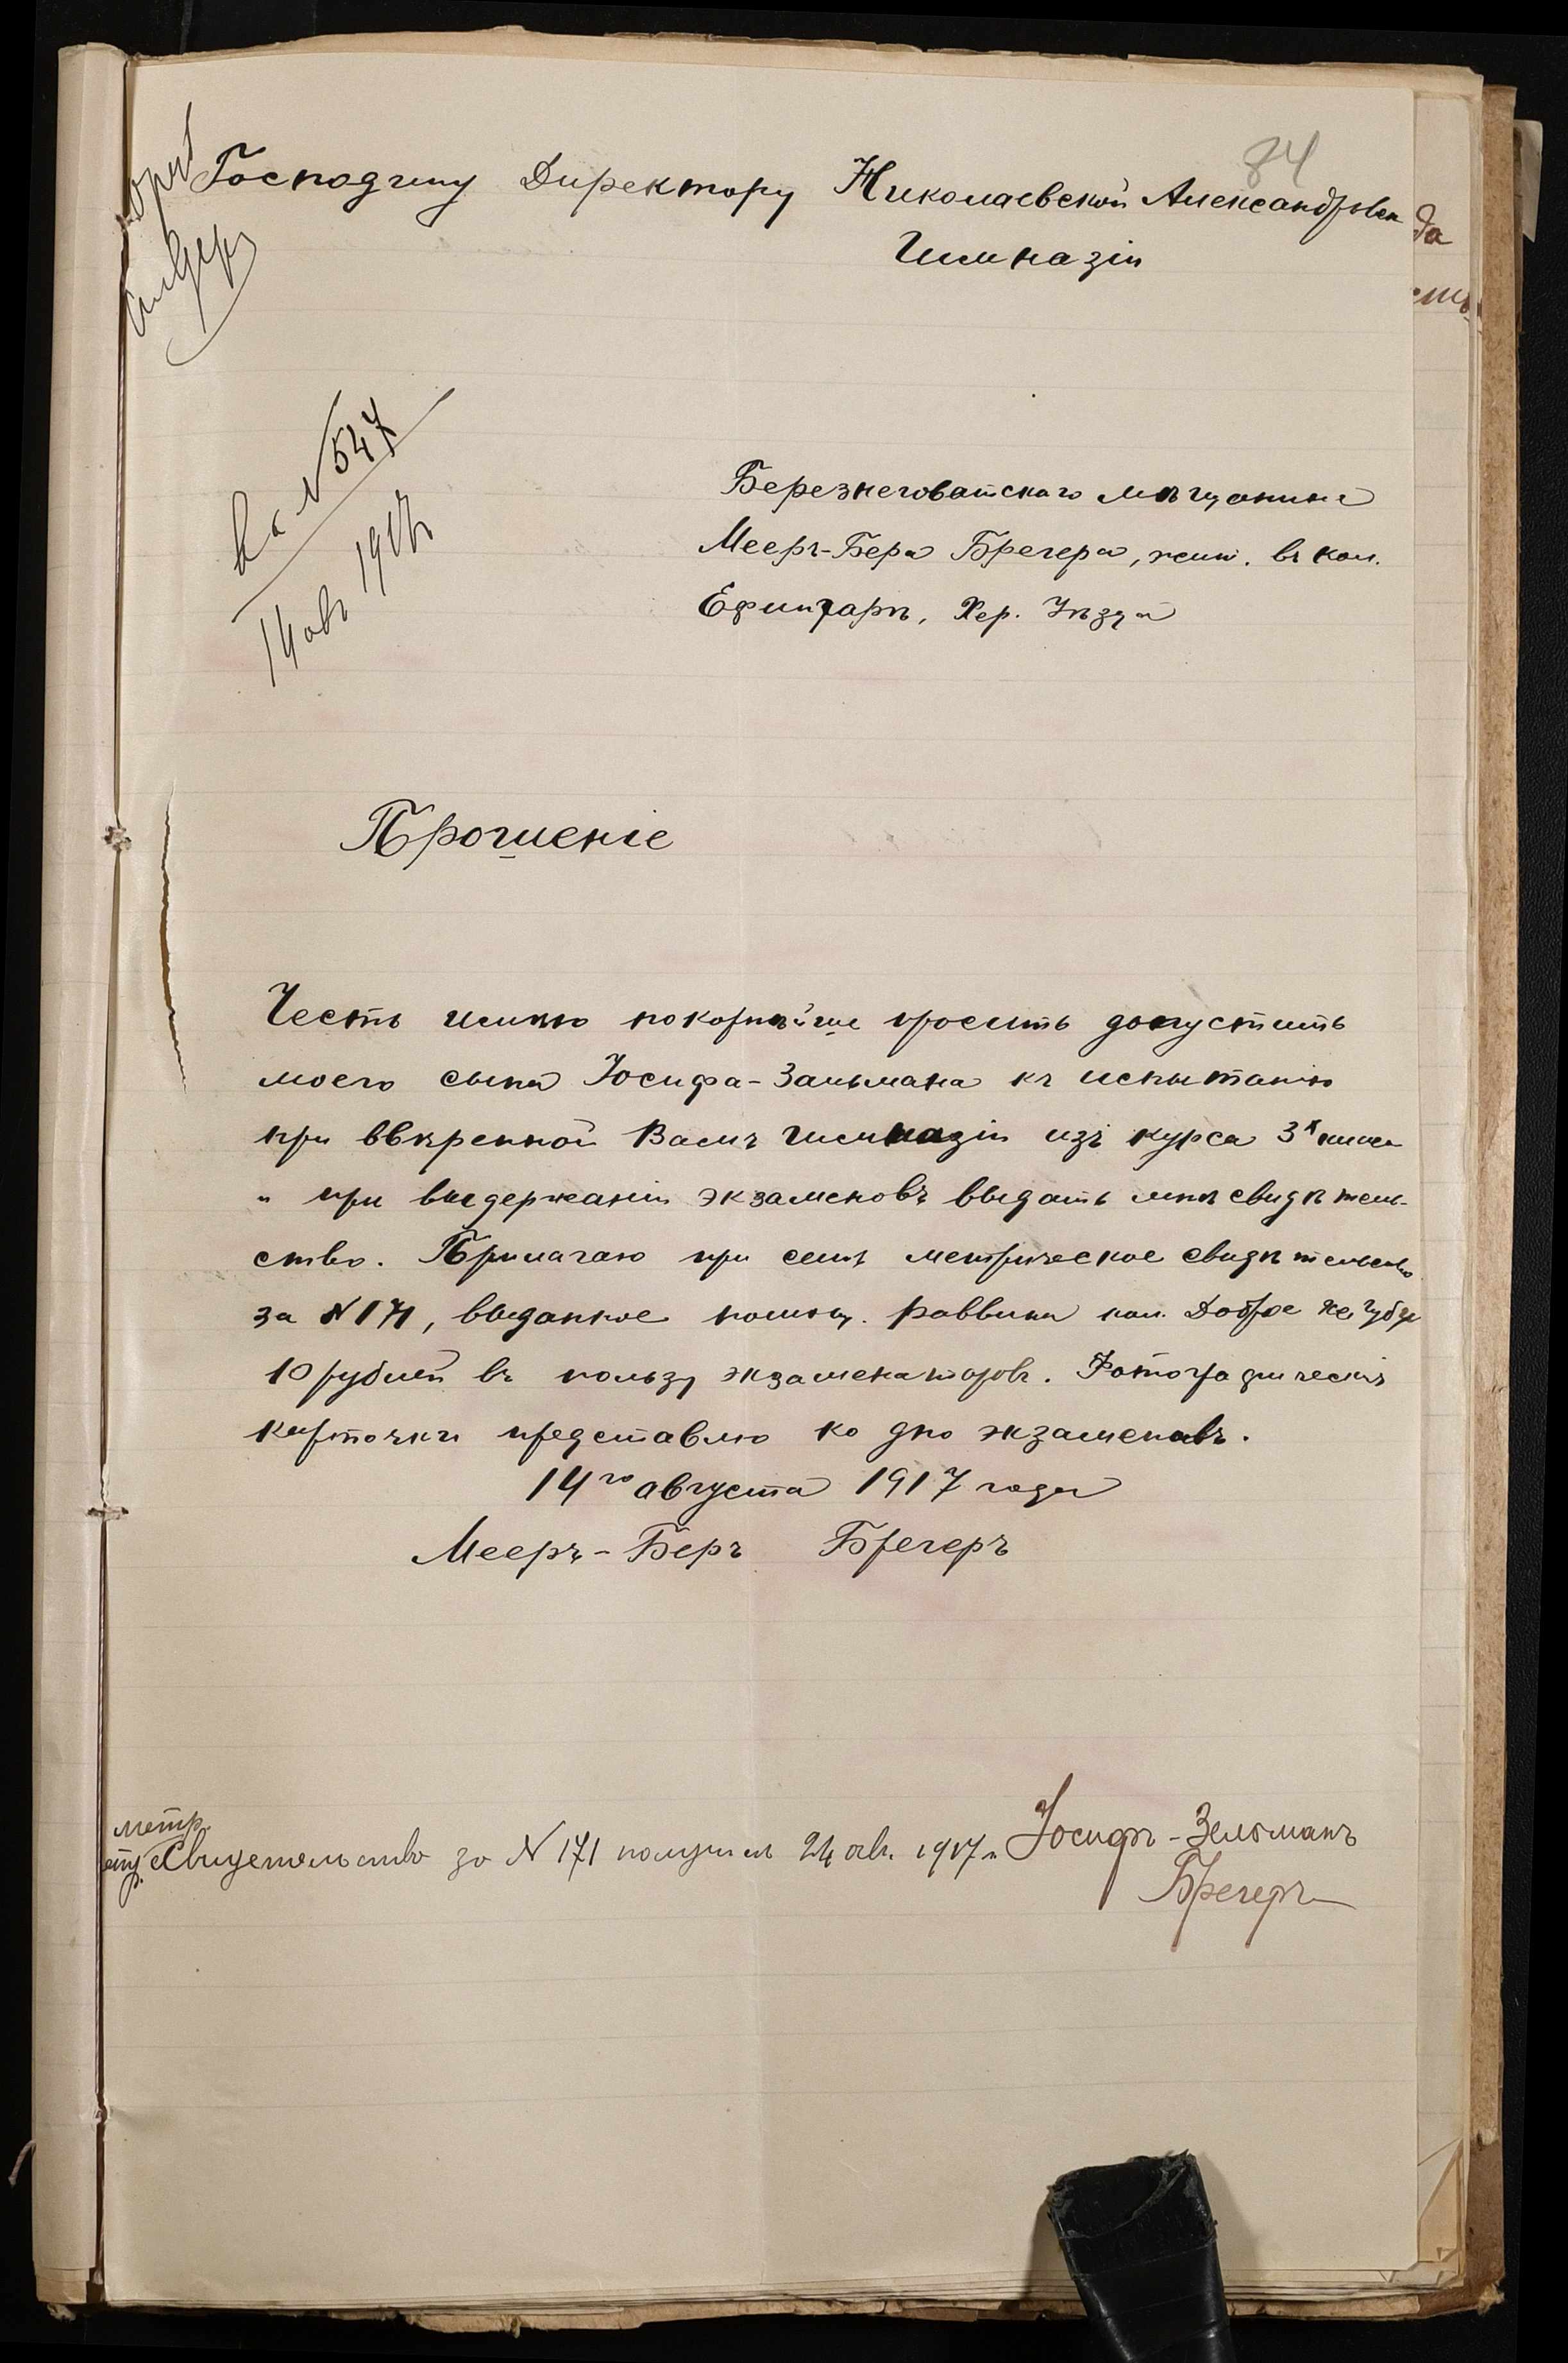 84
Господину Директору Николаевской Александровск
Гимназіи
Вх № 547
14 авг 1917 г.
Березнеговатскаго мѣщанина
Меера-Бера Брегера, жит. въ кол.
Ефингарѣ, Хер. Уѣзда
Прошеніе
Честь имѣю покорнѣйше просить допустить
моего сына Іосифа-Зальмана къ испытанію
при ввѣренной Вамъ гимназіи изъ курса 3х класс
и при выдержаніи экзаменовъ выдать мнѣ свидѣтель-
ство. Прилагаю при семъ метрическое свидѣтельство
за №171, выданное помощ. раввина кол. Доброе Хер. губ. и
10 рублей въ пользу экзаменаторовъ. Фотографическія
карточки представлю ко дню экзаменовъ.
14го августа 1917 года
Мееръ-Беръ Брегеръ
метр.
Свидетельство за № 171 получилъ 24 авг. 1917 г. Іосифъ-Зельманъ
Брегеръ